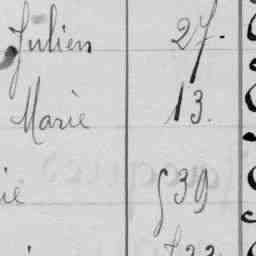 Julien 27.
Marie 13.
ie 39
33